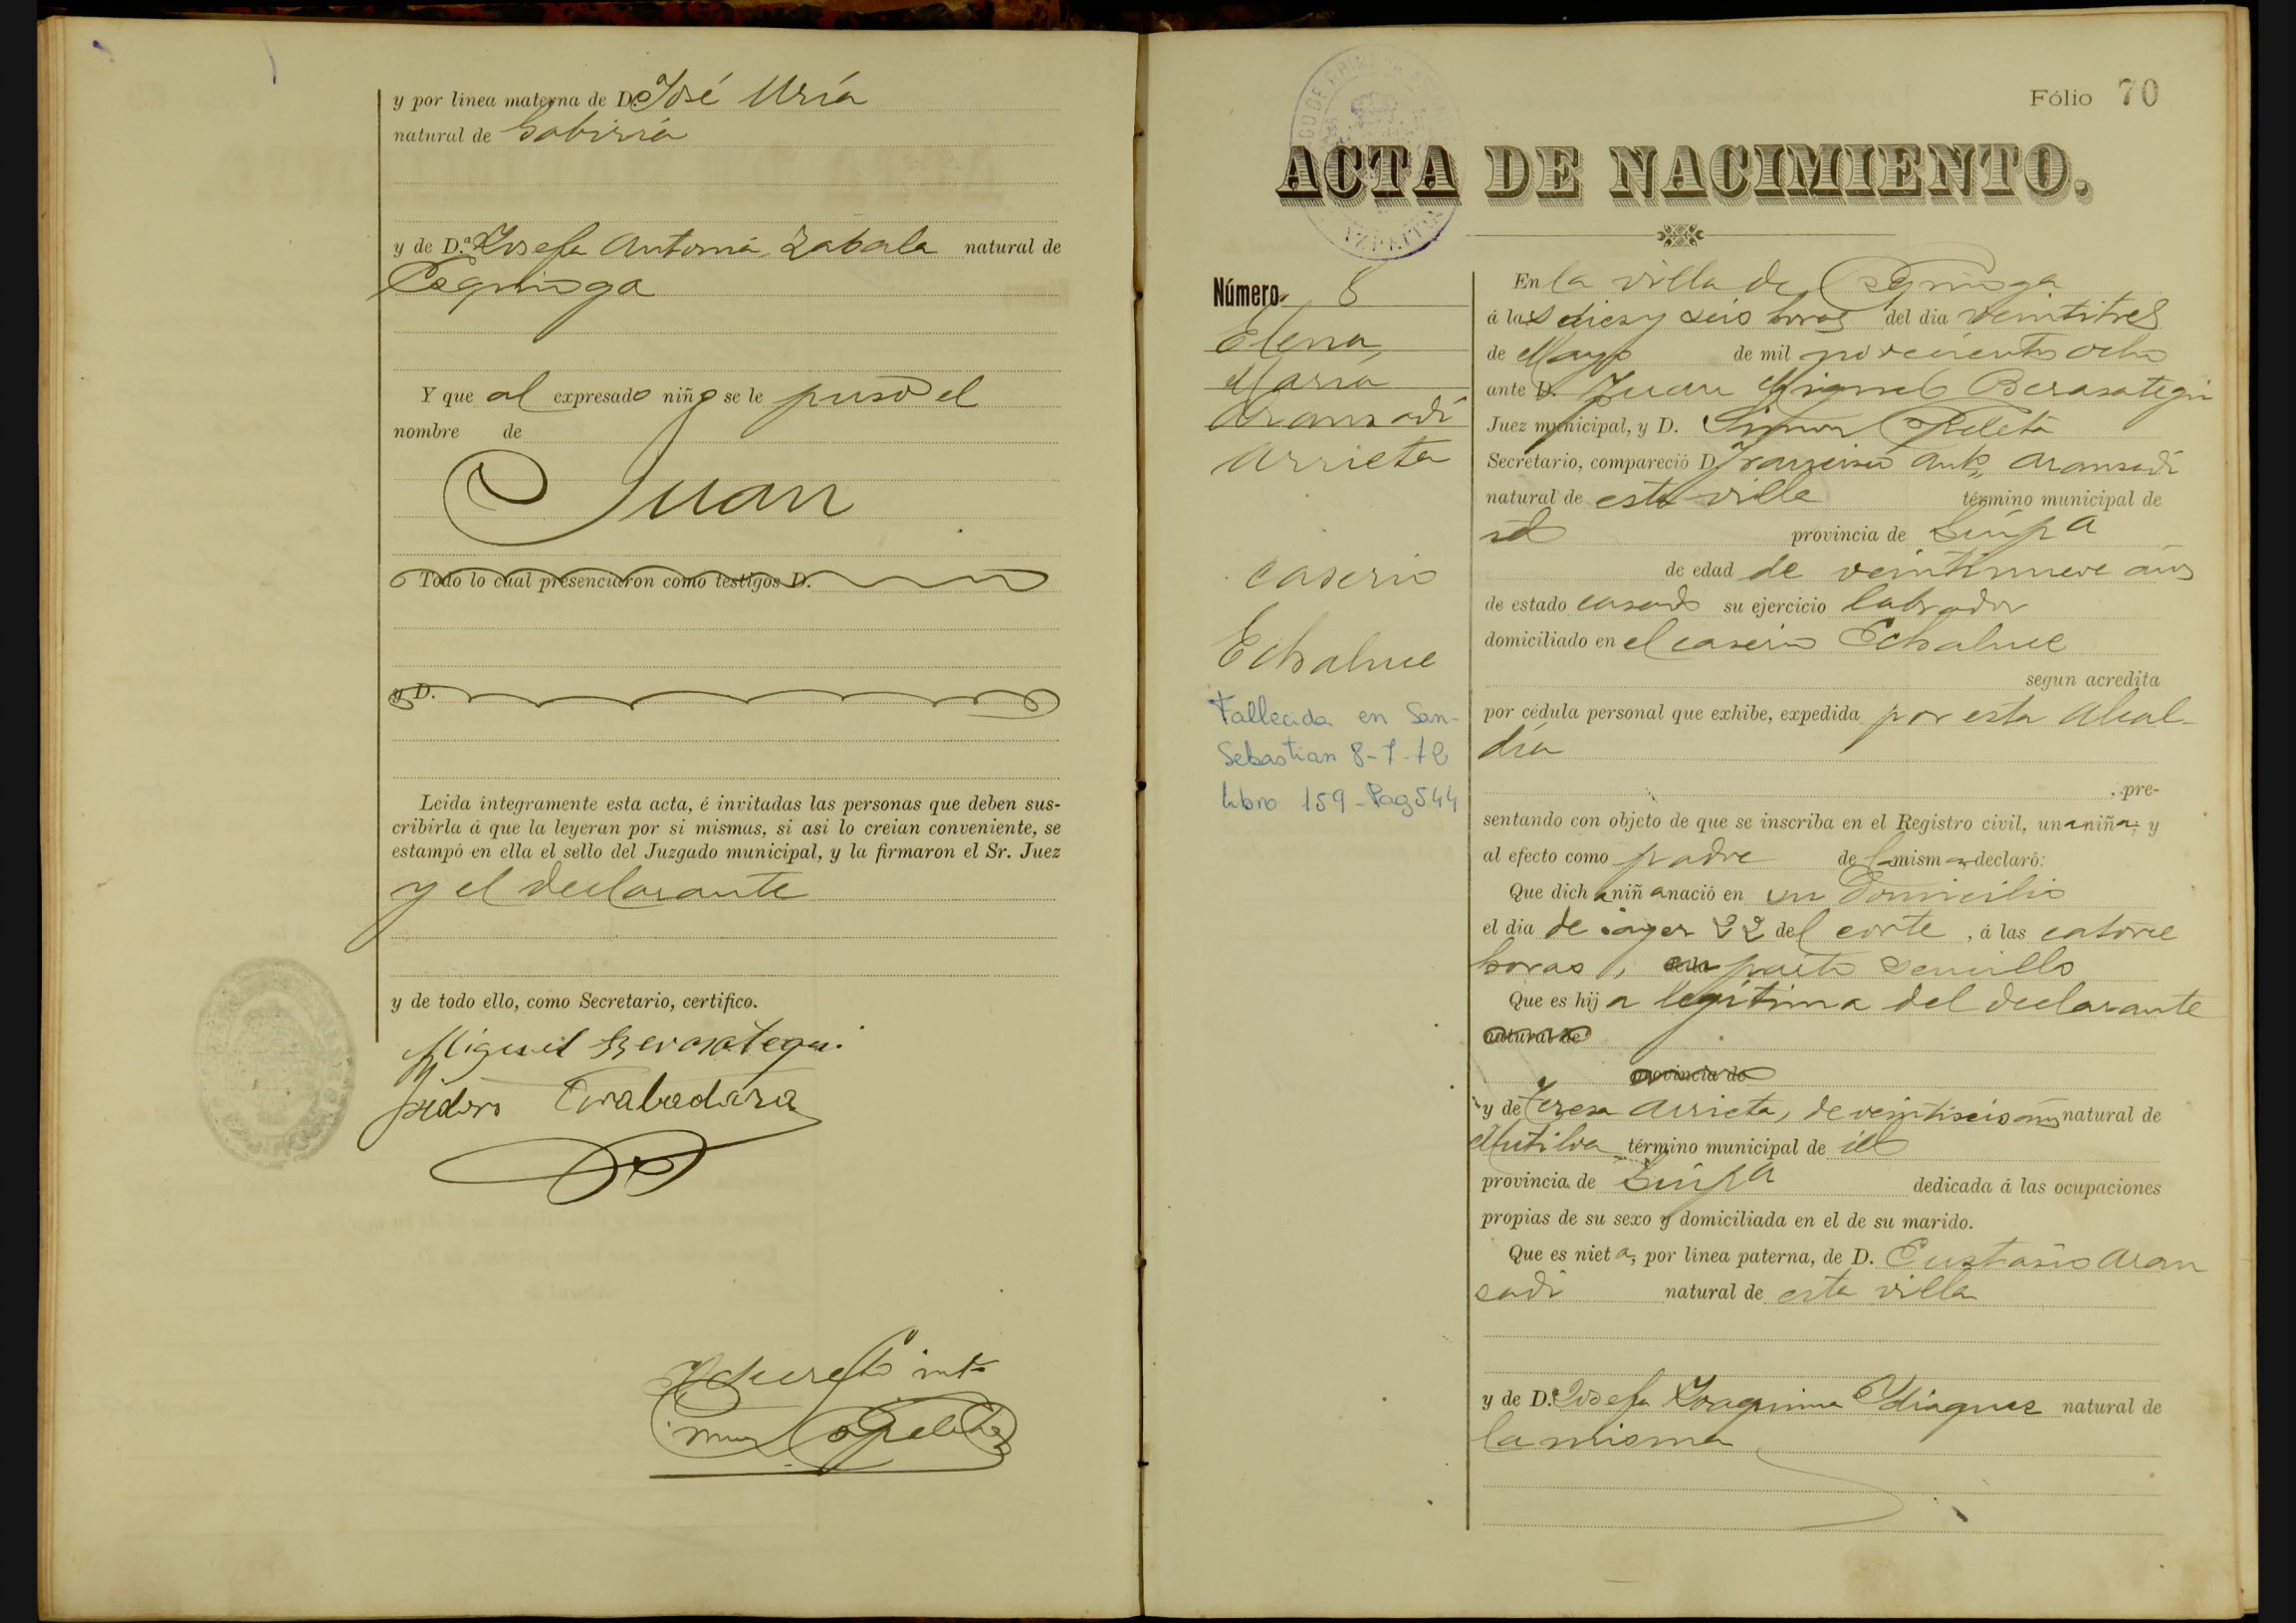 y por linea materna de D. José Uría
natural de Gabiria
y de D.ª Josefa Antonia Zabala natural de
Ezquioga
Y que al expresado niño se le puso el
nombre de
Juan
Todo lo cual presenciaron como testigos D.
y D.
Leida íntegramente esta acta, é invitadas las personas que deben sus-
cribirla á que la leyeran por si mismas, si asi lo creian conveniente, se
estampó en ella el sello del Juzgado municipal, y la firmaron el Sr. Juez
y el declarante
y de todo ello, como Secretario, certifico.
Miguel Berasategui
Isidoro
Fólio 70
ACTA DE NACIMIENTO.
AZPEITIA
Número 8
Elena
María
Aranzadi
Arrieta
Caserio
Echaluce
Fallecida en San-
Sebastian 8-1-72
Libro 159-Pag 544
En la villa de Ezquioga
á las diez y seis horas del dia veintitres
de Mayo de mil novecientos ocho
ante D. Juan Miguel Berasategui
Juez municipal, y D. Simon
Secretario, compareció D. Francisco Antº Aranzadi
natural de esta villa término municipal de
id provincia de Guipª
de edad de veintinueve años
de estado casado su ejercicio labrador
domiciliado en el caserio Echaluce
segun acredita
por cédula personal que exhibe, expedida por esta Alcal-
día
, pre-
sentando con objeto de que se inscriba en el Registro civil, una niña; y
al efecto como padre de la misma declaró:
Que dicha niña nació en su domicilio
el dia de ayer 22 del corte, á las catorce
horas, en parto sencillo
Que es hija legítima del declarante
natural de
provincia de
y de Teresa Arrieta, de veintiseis años natural de
Mutiloa término municipal de id
provincia de Guipª dedicada á las ocupaciones
propias de su sexo y domiciliada en el de su marido.
Que es nieta, por linea paterna, de D. Eustasio Aran
zadi natural de esta villa
y de D.ª Josefa Joaquina Ydiaquez natural de
la misma